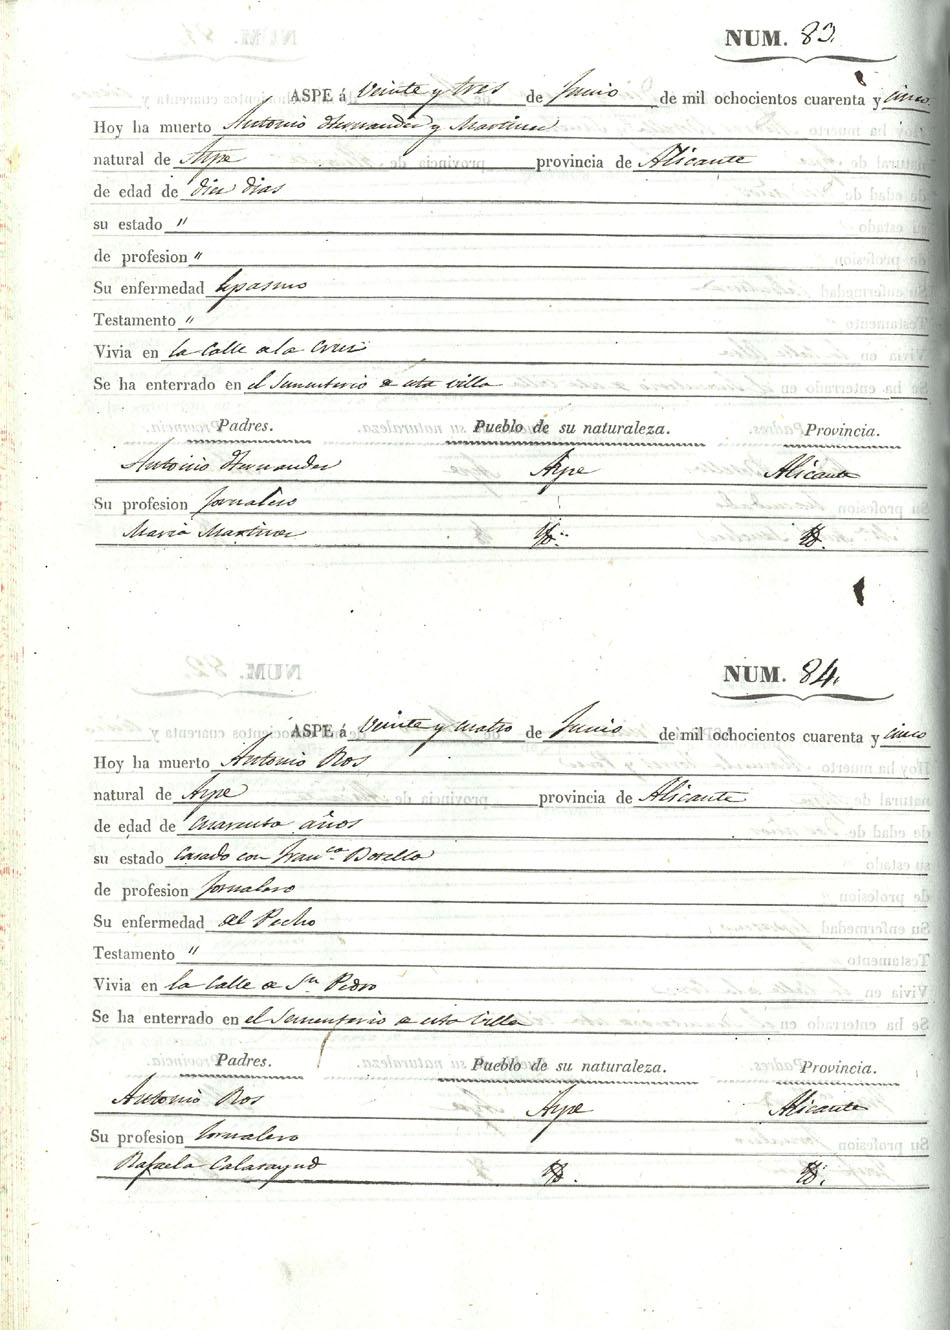 NUM. 83.
ASPE á veinte y tres de Junio de mil ochocientos cuarenta y cinco
Hoy ha muerto Antonio Hernandez y Martinez
natural de Aspe provincia de Alicante
de edad de diez dias
su estado "
de profesion "
Su enfermedad Espasmo
Testamento "
Vivia en la Calle de la Cruz
Se ha enterrado en el Sementerio de esta villa
Padres. Pueblo de su naturaleza. Provincia.
Antonio Hernandez Aspe Alicante
Su profesion Jornalero
Maria Martinez Yd. Yd.
NUM. 84.
ASPE á veinte y cuatro de Junio de mil ochocientos cuarenta y cinco
Hoy ha muerto Antonio Ros
natural de Aspe provincia de Alicante
de edad de cuarenta años
su estado Casado con Fran.ca Botella
de profesion Jornalero
Su enfermedad del Pecho
Testamento "
Vivia en la Calle de Sn Pedro
Se ha enterrado en el Sementerio de esta Villa
Padres. Pueblo de su naturaleza. Provincia.
Antonio Ros Aspe Alicante
Su profesion Jornalero
Rafaela Calatayud Yd. Yd.